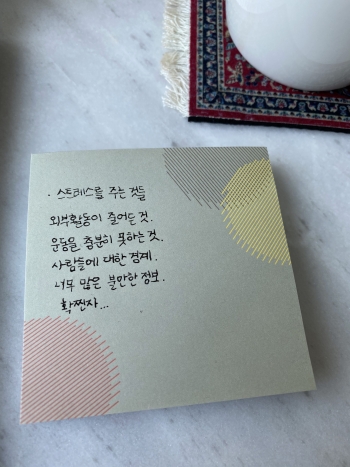 · 스트레스를 주는 것들
외부활동이 줄어든 것.
운동을 충분히 못하는 것.
사람들에 대한 경계.
너무 많은 불만한 정보.
확찐자...